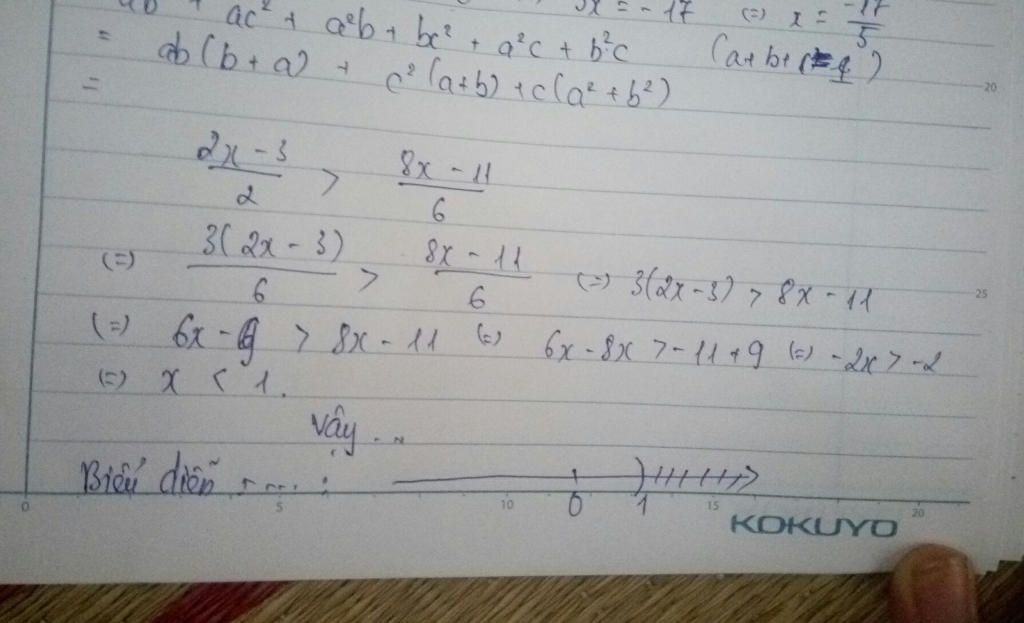 ac² + a²b + bc² + a²c + b²c 3x = -17 (=) x = -17/5
= ab(b + a) + c²(a+b) + c(a² + b²) (a + b +
=
2x - 3 / 2 > 8x - 11 / 6
(=) 3(2x - 3) / 6 > 8x - 11 / 6 (=) 3(2x - 3) > 8x - 11
(=) 6x - 9 > 8x - 11 (=) 6x - 8x > -11 + 9 (=) -2x > -2
(=) x < 1.
Vậy ...
Biểu diễn ..... :
0 1
0 5 10 15 20
20
25
KOKUYO